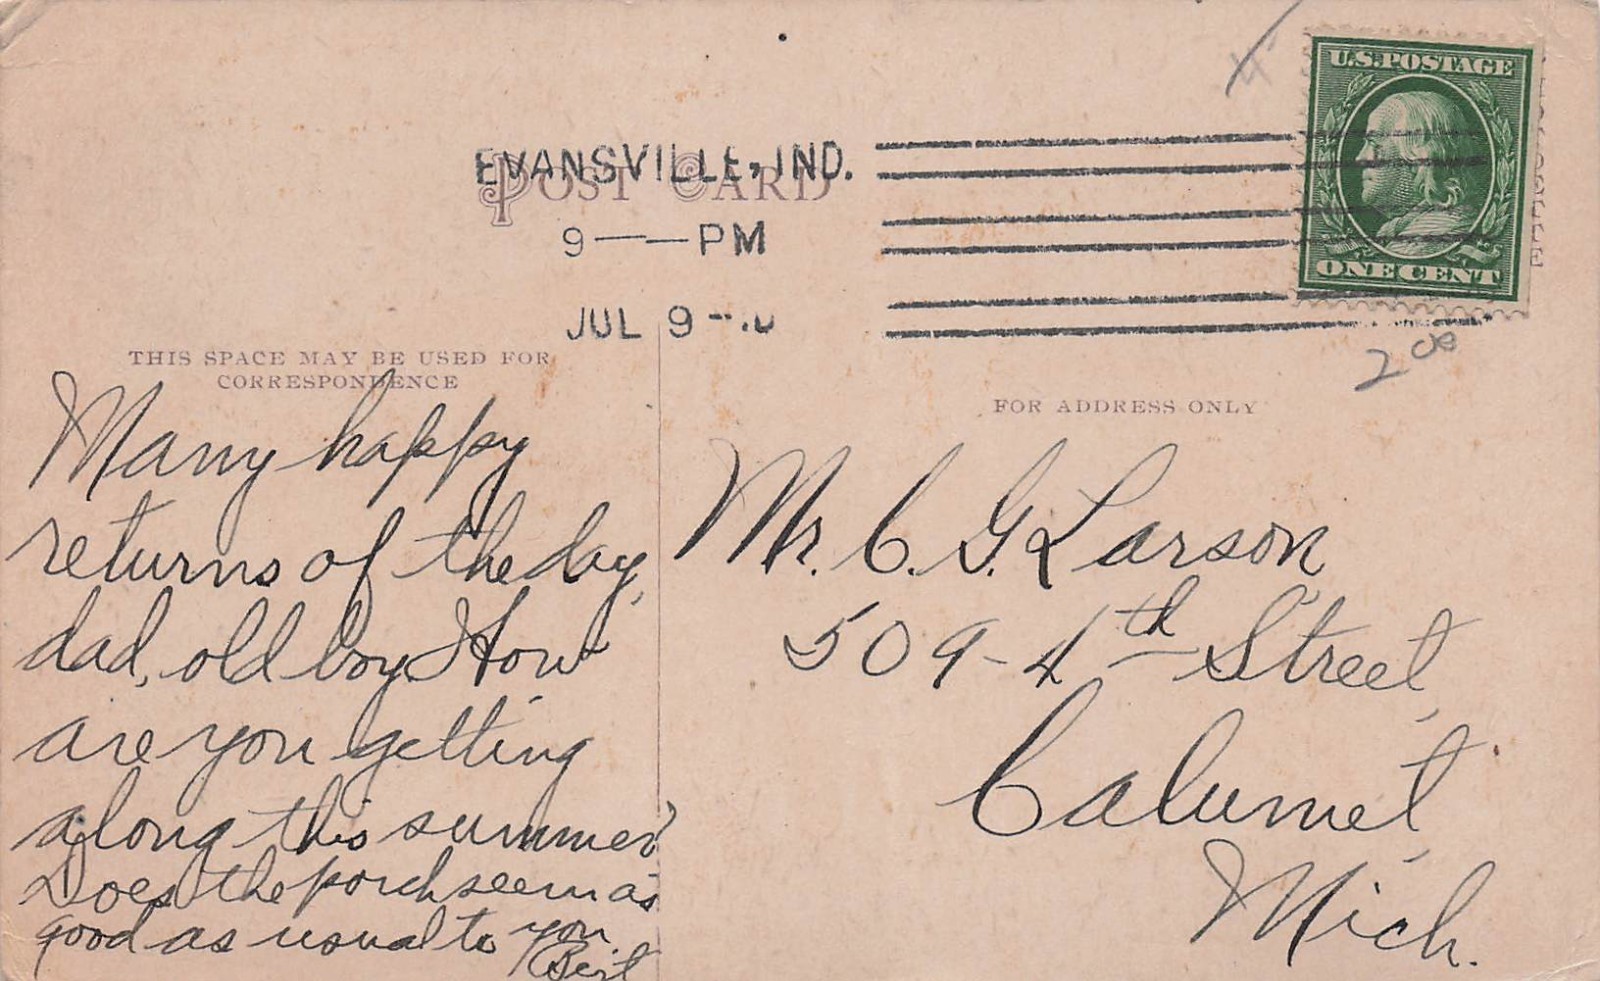 U.S.POSTAGE
ONE CENT
EVANSVILLE, IND.
POST CARD
9——PM
JUL 9
2 00
THIS SPACE MAY BE USED FOR
CORRESPONDENCE
Many happy
returns of the day,
dad, old boy. How
are you getting
along this summer?
Does the porch seem as
good as usual to you.
Bert
FOR ADDRESS ONLY
Mr. C. G. Larson
509-4th Street,
Calumet,
Mich.